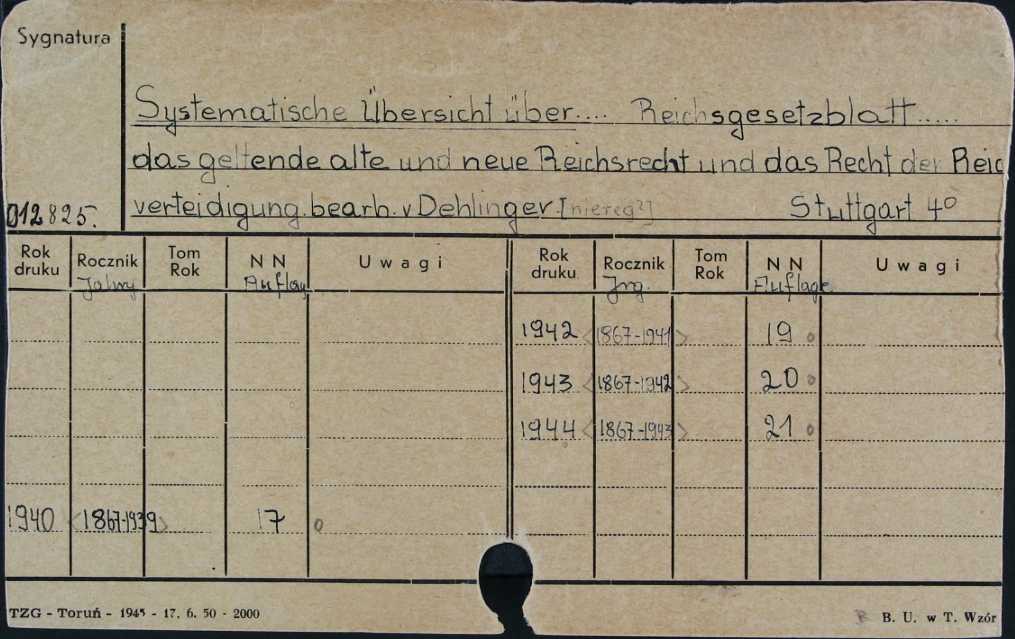 Sygnatura
Systematische Übersicht über.... Reichsgesetzblatt.....
das geltende alte und neue Reichsrecht und das Recht der Reic
012825. verteidigung. bearh. v Dehlinger. [niereg?] Stuttgart 4°
Rok druku Rocznik Tom Rok N N Uwagi Rok druku Rocznik Tom Rok N N Uwagi
Auflag Jrg. Auflage
1942 <1867-1941> 19
1943 <1867-1942> 20
1944 <1867-1943> 21
1940 <1867-1939> 17
TZG - Toruń - 1945 - 17. 6. 50 - 2000 B. U. w T. Wzór